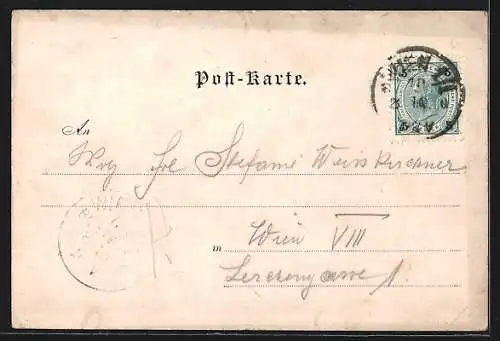 Post-Karte.
WIEN
An
Frl Stefanie Weisskirchner
WIEN
in Wien VIII
Lerchengasse 1.